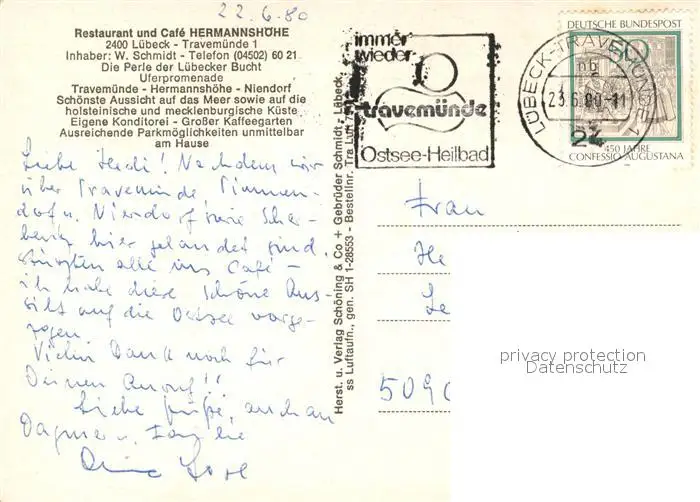 22.6.80
Restaurant und Café HERMANNSHÖHE
2400 Lübeck - Travemünde 1
Inhaber: W. Schmidt - Telefon (04502) 60 21
Die Perle der Lübecker Bucht
Uferpromenade
Travemünde - Hermannshöhe - Niendorf
Schönste Aussicht auf das Meer sowie auf die
holsteinische und mecklenburgische Küste
Eigene Konditorei - Großer Kaffeegarten
Ausreichende Parkmöglichkeiten unmittelbar
am Hause
Liebe Heidi! Nachdem wir
über Travemünde, Timmen-
dorf u. Niendorf, sowie
hier gelandet sind,
stürzten alle ins Café –
ich habe diese schöne Aus-
sicht auf die Ostsee vorge-
zogen.
Vielen Dank noch für
Deinen Anruf!!
Liebe Grüße, auch an
Dagmar u. Familie
Deine
Herst. u. Verlag Schöning & Co + Gebrüder Schmidt - Lübeck,
ss Luftaufn., gen. SH 1-28553 - Bestellnr. Tra Luft
immer
wieder
travemünde
Ostsee-Heilbad
LÜBECK-TRAVEMÜNDE 1
nb
23.6.80-11
24
DEUTSCHE BUNDESPOST
450 JAHRE
CONFESSIO AUGUSTANA
Frau
He
Le
5090
privacy protection
Datenschutz